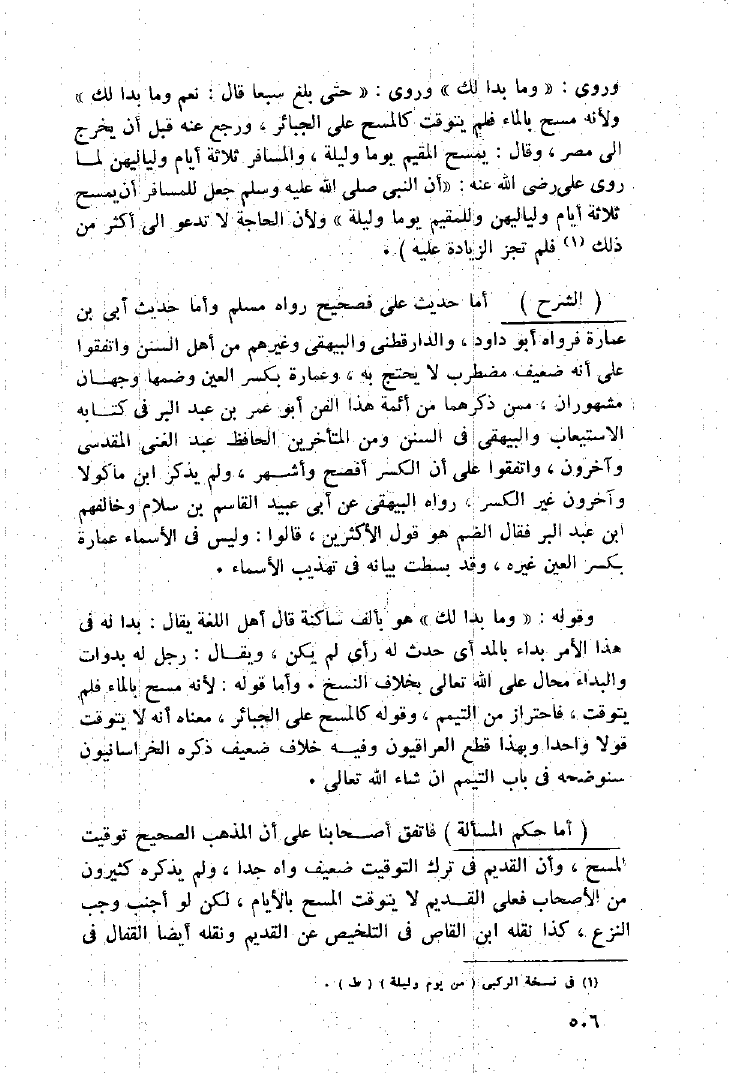 وروى : « وما بدا لك » وروى : « حتى بلغ سبعا قال : نعم وما بدا لك »
ولأنه مسح بالماء فلم يتوقت كالمسح على الجبائر ، ورجع عنه قبل أن يخرج
الى مصر ، وقال : يمسح المقيم يوما وليلة ، والمسافر ثلاثة أيام ولياليهن لمـا
روى على رضى الله عنه : «أن النبى صلى الله عليه وسلم جعل للمسافر أن يمسح
ثلاثة أيام ولياليهن وللمقيم يوما وليلة » ولأن الحاجة لا تدعو الى أكثر من
ذلك (١) فلم تجز الزيادة عليه ) .
( الشرح ) أما حديث على فصحيح رواه مسلم وأما حديث أبى بن
عمارة فرواه أبو داود ، والدارقطنى والبيهقى وغيرهم من أهل السنن واتفقوا
على أنه ضعيف مضطرب لا يحتج به ، وعمارة بكسر العين وضمها وجهـان
مشهوران ، ممن ذكرهما من أئمة هذا الفن أبو عمر بن عبد البر فى كتـابه
الاستيعاب والبيهقى فى السنن ومن المتأخرين الحافظ عبد الغنى المقدسى
وآخرون ، واتفقوا على أن الكسر أفصح وأشـــهر ، ولم يذكر ابن ماكولا
وآخرون غير الكسر ، رواه البيهقى عن أبى عبيد القاسم بن سلام وخالفهم
ابن عبد البر فقال الضم هو قول الأكثرين ، قالوا : وليس فى الأسماء عمارة
بكسر العين غيره ، وقد بسطت بيانه فى تهذيب الأسماء .
وقوله : « وما بدا لك » هو بألف ساكنة قال أهل اللغة يقال : بدا له فى
هذا الأمر بداء بالمد أى حدث له رأي لم يكن ، ويقــال : رجل له بدوات
والبداء محال على الله تعالى بخلاف النسخ . وأما قوله : لأنه مسح بالماء فلم
يتوقت ، فاحتراز من التيمم ، وقوله كالمسح على الجبائر ، معناه أنه لا يتوقت
قولا واحدا وبهذا قطع العراقيون وفيــه خلاف ضعيف ذكره الخراسانيون
سنوضحه فى باب التيمم ان شاء الله تعالى .
( أما حكم المسألة ) فاتفق أصــحابنا على أن المذهب الصحيح توقيت
المسح ، وأن القديم فى ترك التوقيت ضعيف واه جدا ، ولم يذكره كثيرون
من الأصحاب فعلى القــديم لا يتوقت المسح بالأيام ، لكن لو أجنب وجب
النزع ، كذا نقله ابن القاص فى التلخيص عن القديم ونقله أيضا القفال فى
(١) فى نسخة الركبى ( من يوم وليلة ) ( ط ) .
٥٠٦